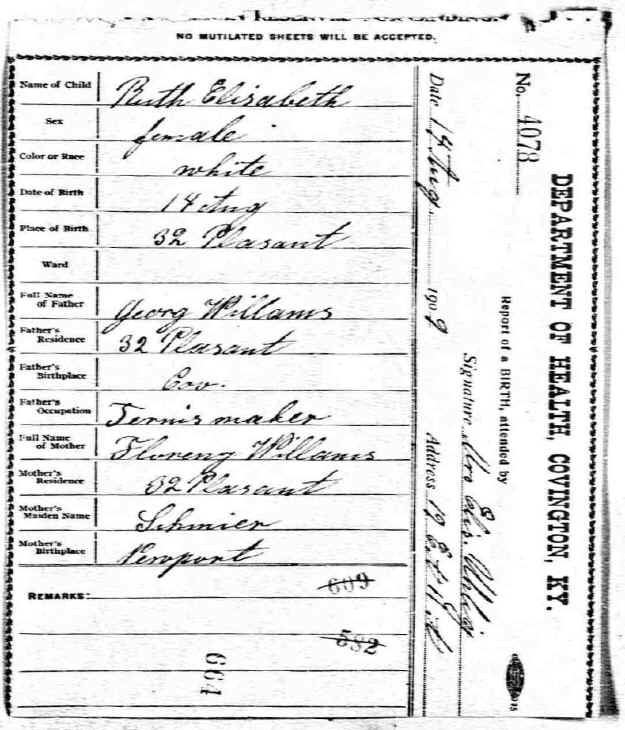 NO MUTILATED SHEETS WILL BE ACCEPTED.
Name of Child Ruth Elizabeth
Sex female
Color or Race white
Date of Birth 18 Aug
Place of Birth 32 Pleasant
Ward
Full Name of Father Georg Willams
Father's Residence 32 Pleasant
Father's Birthplace Cov.
Father's Occupation
Full Name of Mother Floreny Willams
Mother's Residence 32 Pleasant
Mother's Maiden Name Schmier
Mother's Birthplace Newport
REMARKS: 609
532
664
DEPARTMENT OF HEALTH, COVINGTON, KY.
No. 4078
Report of a BIRTH, attended by
Signature Mrs Elis. Uhlig
Date 18 Aug 1909 Address